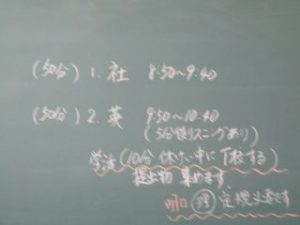 (50分) 1. 社 8:50~9:40
(50分) 2. 英 9:50~10:40
(5分後リスニングあり)
(10分休けい中に下校する)
提出物 集めます。
明日 理